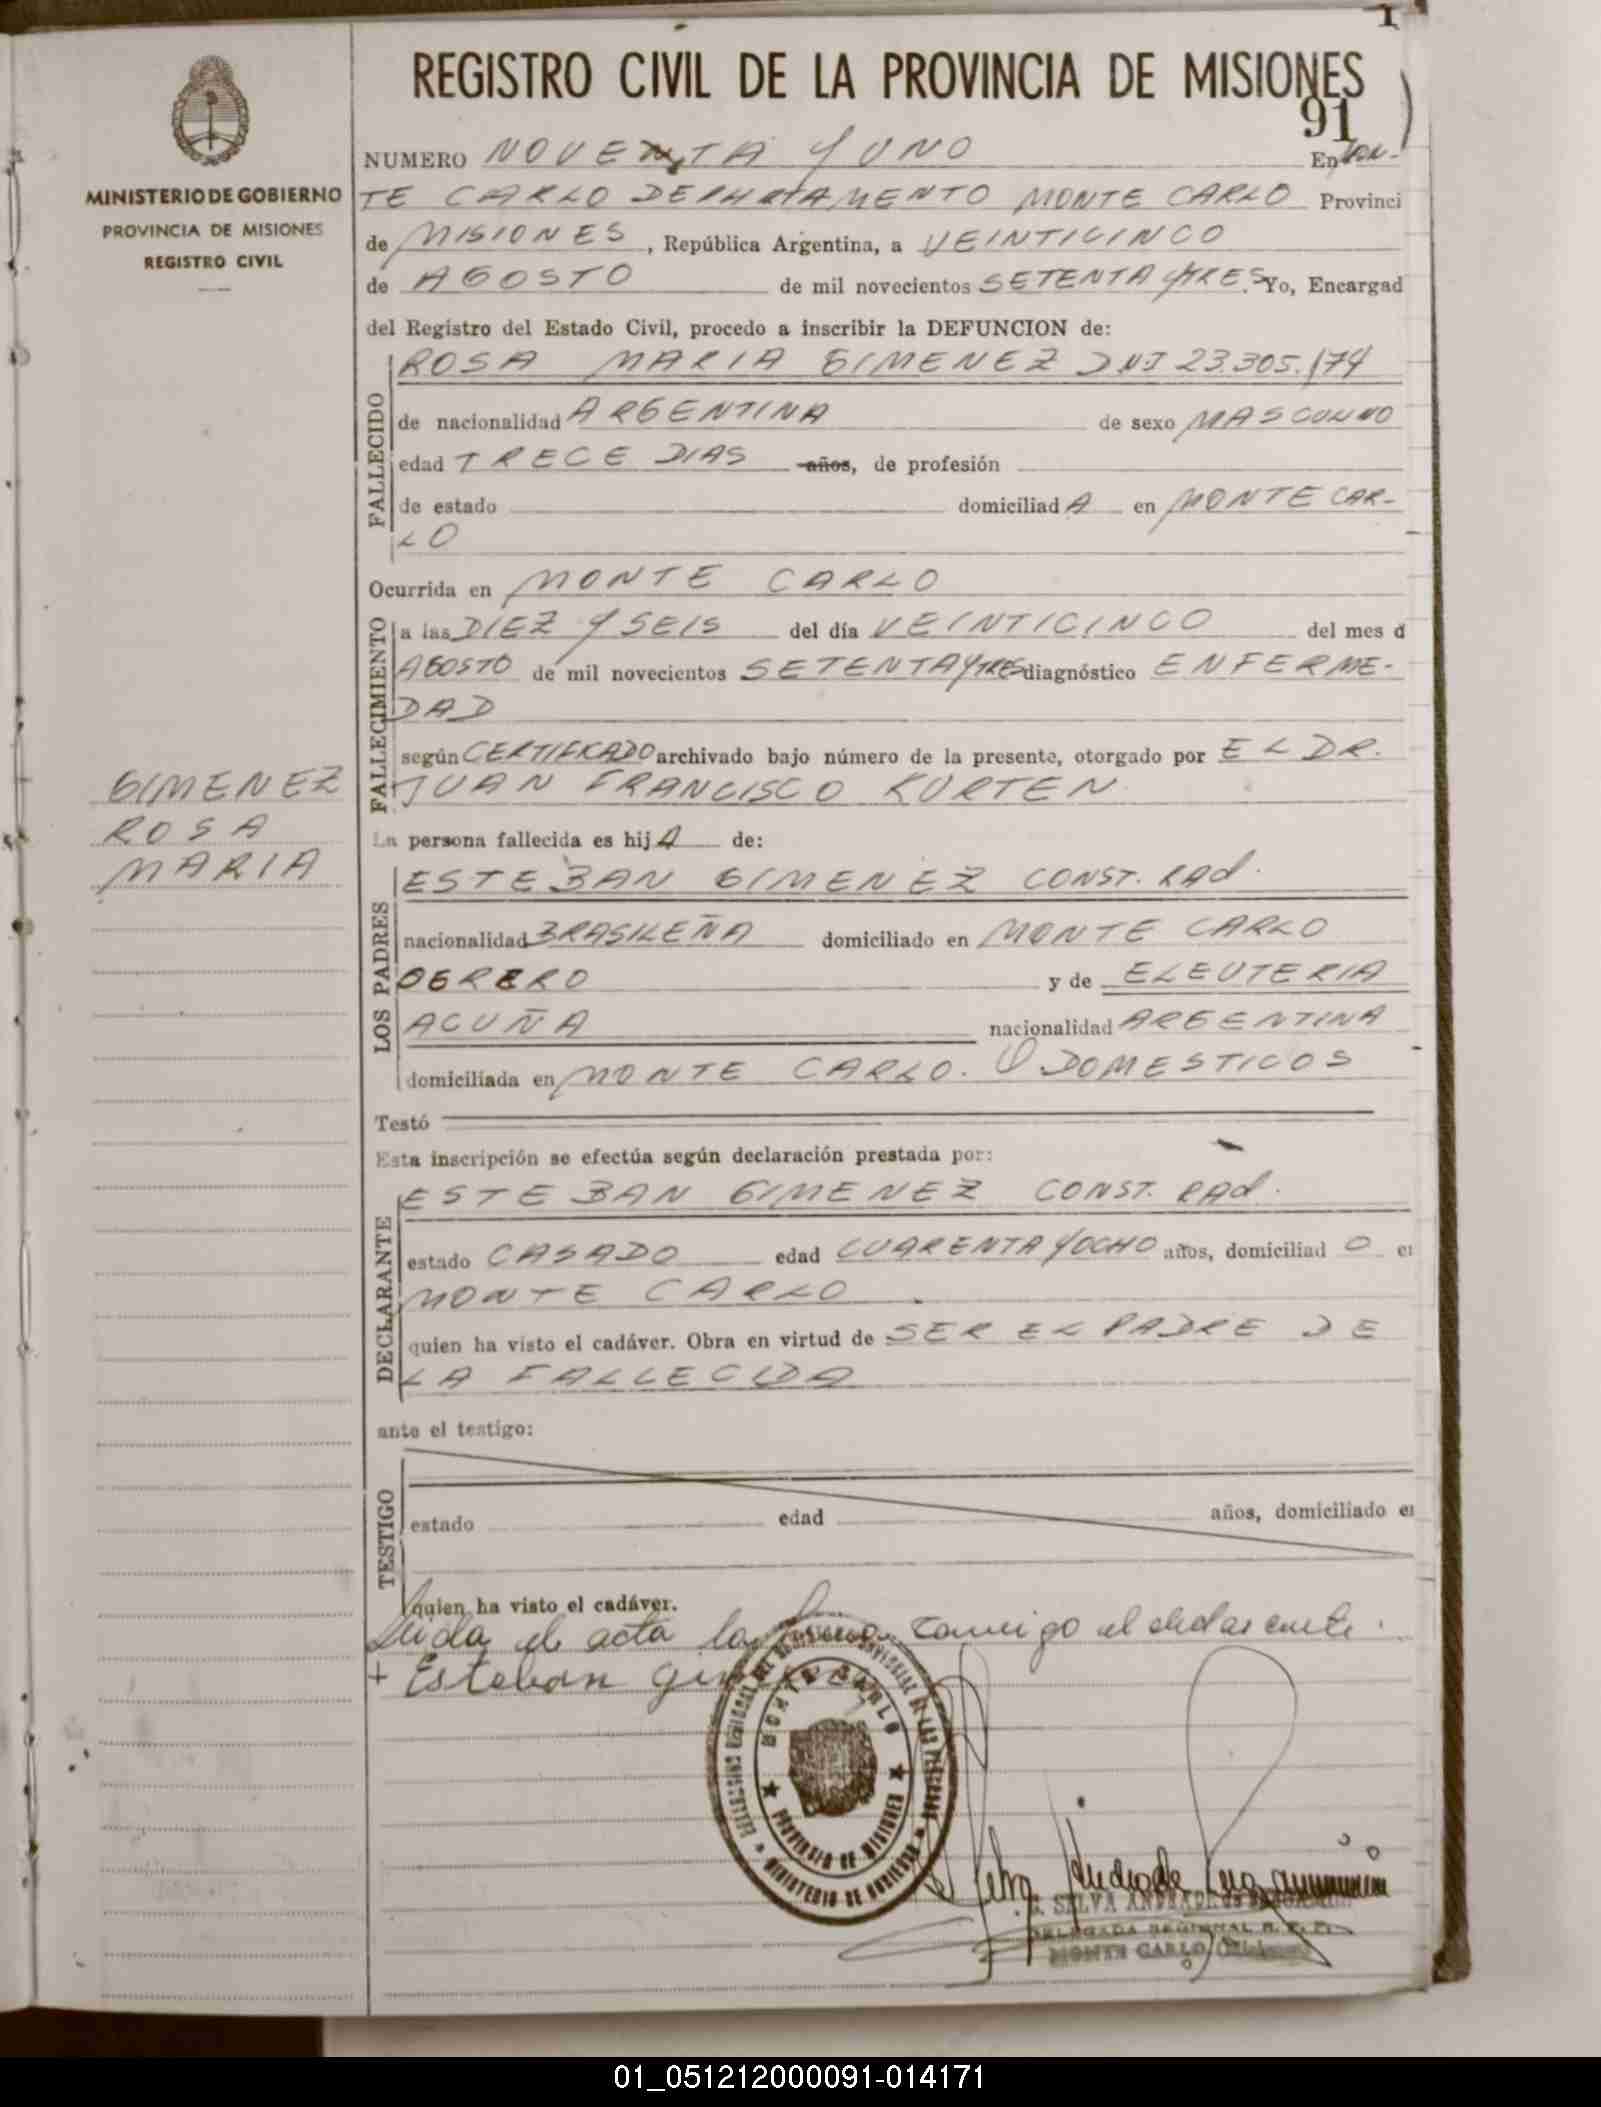 I
REGISTRO CIVIL DE LA PROVINCIA DE MISIONES
91
MINISTERIO DE GOBIERNO
PROVINCIA DE MISIONES
REGISTRO CIVIL
NUMERO NOVENTA Y UNO En MON-
TE CARLO DEPARTAMENTO MONTE CARLO Provinci
de MISIONES, República Argentina, a VEINTICINCO
de AGOSTO de mil novecientos SETENTA Y TRES. Yo, Encargad
del Registro del Estado Civil, procedo a inscribir la DEFUNCION de:
FALLECIDO
ROSA MARIA GIMENEZ DNI 23.305.174
de nacionalidad ARGENTINA de sexo MASCULINO
edad TRECE DIAS años, de profesión
de estado domiciliad A en MONTE CAR-
LO
Ocurrida en MONTE CARLO
FALLECIMIENTO
a las DIEZ Y SEIS del día VEINTICINCO del mes d
AGOSTO de mil novecientos SETENTA Y TRES diagnóstico ENFERME-
DAD
según CERTIFICADO archivado bajo número de la presente, otorgado por EL DR.
JUAN FRANCISCO KURTEN
GIMENEZ
ROSA
MARIA
La persona fallecida es hij A de:
LOS PADRES
ESTEBAN GIMENEZ CONST. RAd.
nacionalidad BRASILEÑA domiciliado en MONTE CARLO
OBRERO y de ELEUTERIA
ACUÑA nacionalidad ARGENTINA
domiciliada en MONTE CARLO. Q DOMESTICOS
Testó
Esta inscripción se efectúa según declaración prestada por:
DECLARANTE
ESTEBAN GIMENEZ CONST. RAd.
estado CASADO edad CUARENTA Y OCHO años, domiciliad O e
MONTE CARLO
quien ha visto el cadáver. Obra en virtud de SER EL PADRE DE
LA FALLECIDA
ante el testigo:
TESTIGO
estado edad años, domiciliado e
quien ha visto el cadáver.
Leida el acta la firma conmigo el declarante.
+ Esteban
MONTE CARLO
PROVINCIA DE MISIONES
MINISTERIO DE GOBIERNO
DELEGADA REGIONAL R. P. P.
MONTE CARLO (Misiones)
01_051212000091-014171